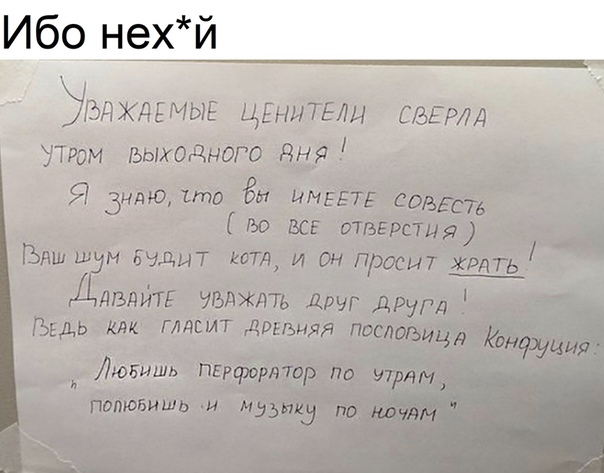 Ибо нех*й
Уважаемые ценители сверла
утром выходного дня!
Я знаю, что вы имеете совесть
(во все отверстия)
Ваш шум будит кота, и он просит жрать!
Давайте уважать друг друга!
Ведь как гласит древняя пословица Конфуция:
„Любишь перфоратор по утрам,
полюбишь и музыку по ночам"